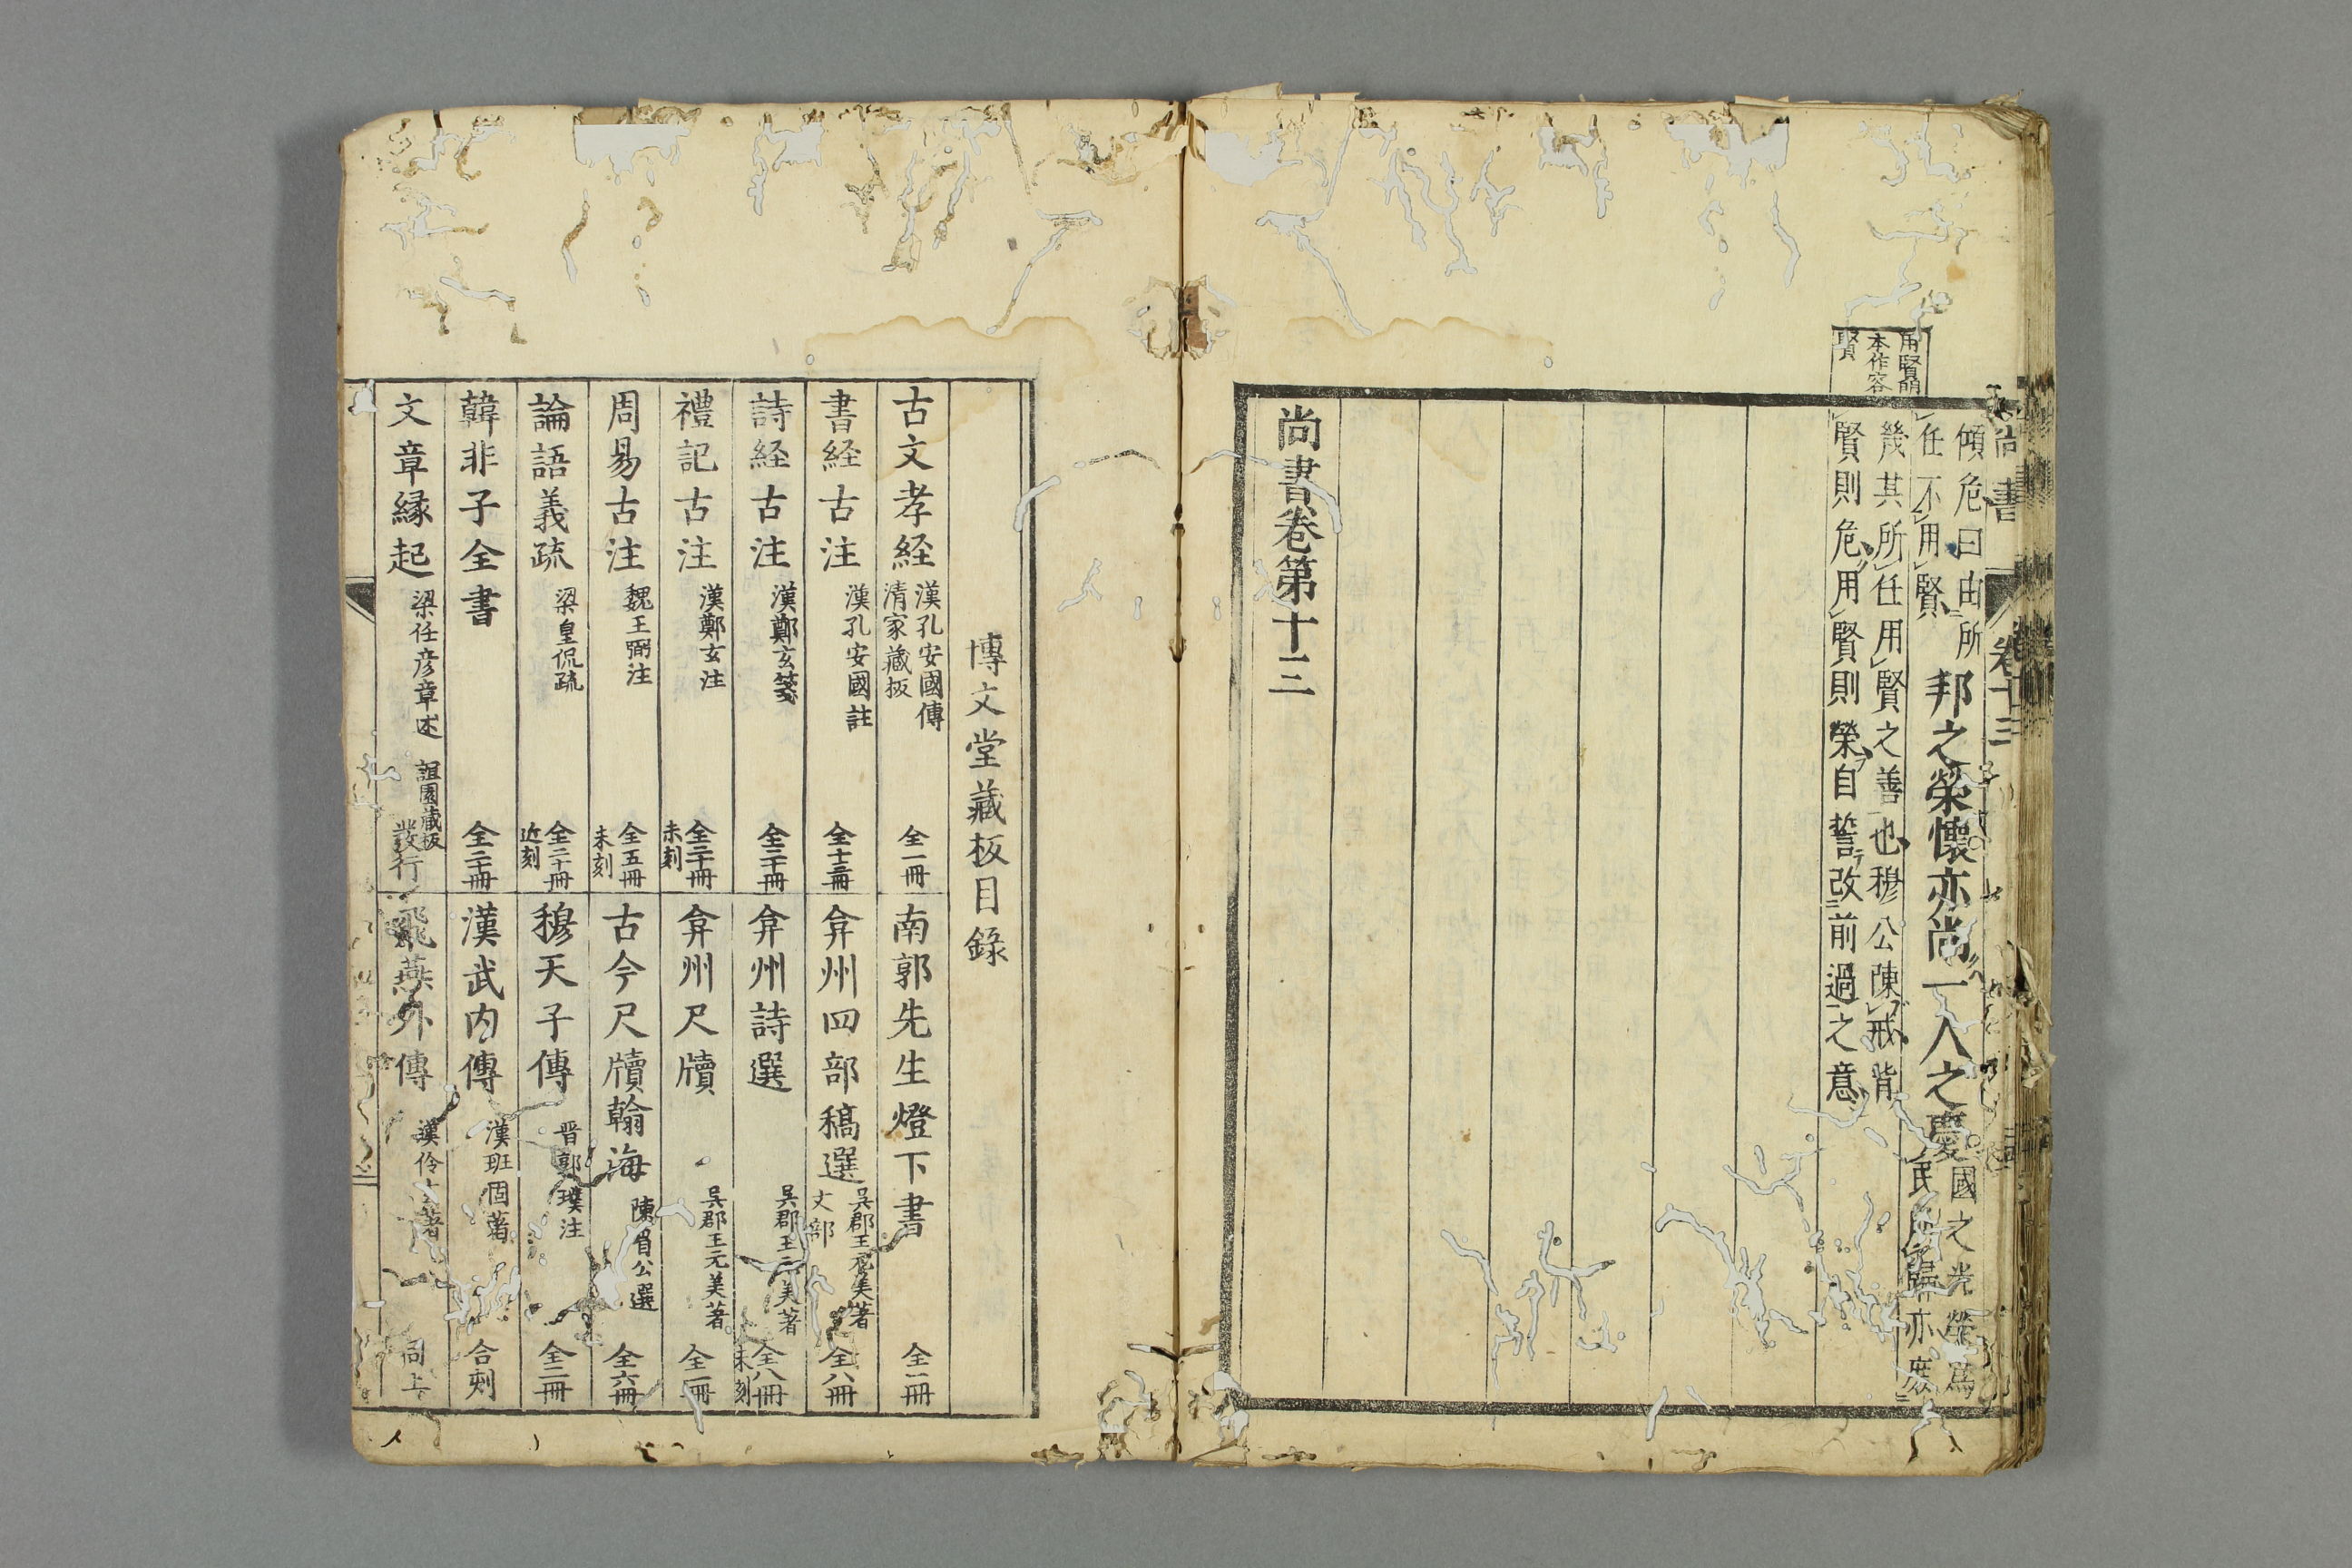 尚書
卷十三
用賢明
本作容
賢
傾危曰由所
任不用賢
邦之榮懷亦尚一人之慶
國之光榮爲
民所歸亦庶
幾其所任用賢之善也穆公陳戒背
賢則危用賢則榮自誓改前過之意
尚書卷第十三
博文堂藏板目錄
古文孝経 漢孔安國傳 清家藏板 全一冊
書経古注 漢孔安國註 全十三冊
詩経古注 漢鄭玄箋 全二十冊
禮記古注 漢鄭玄注 全二十冊 未刻
周易古注 魏王弼注 全五冊 未刻
論語義疏 梁皇侃疏 全二十冊 近刻
韓非子全書 全二十冊
文章縁起 梁任彦章述 蘐園藏板 發行
南郭先生燈下書 全一冊
弇州四部稿選 吳郡王元美著 文部 全八冊
弇州詩選 吳郡王元美著 全八冊 未刻
弇州尺牘 吳郡王元美著 全一冊
古今尺牘翰海 陳眉公選 全六冊
穆天子傳 晋郭璞注 全二冊
漢武内傳 漢班固著 合刻
飛燕外傳 漢伶玄著 同上